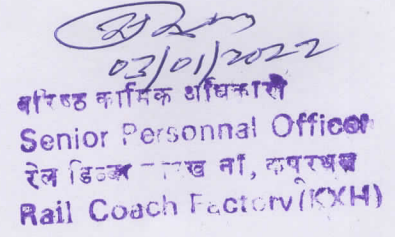 03/01/2022
वरिष्ठ कार्मिक अधिकारी
Senior Personnal Officer
रेल डिब्बा कपूरथला
Rail Coach Factory (KXH)